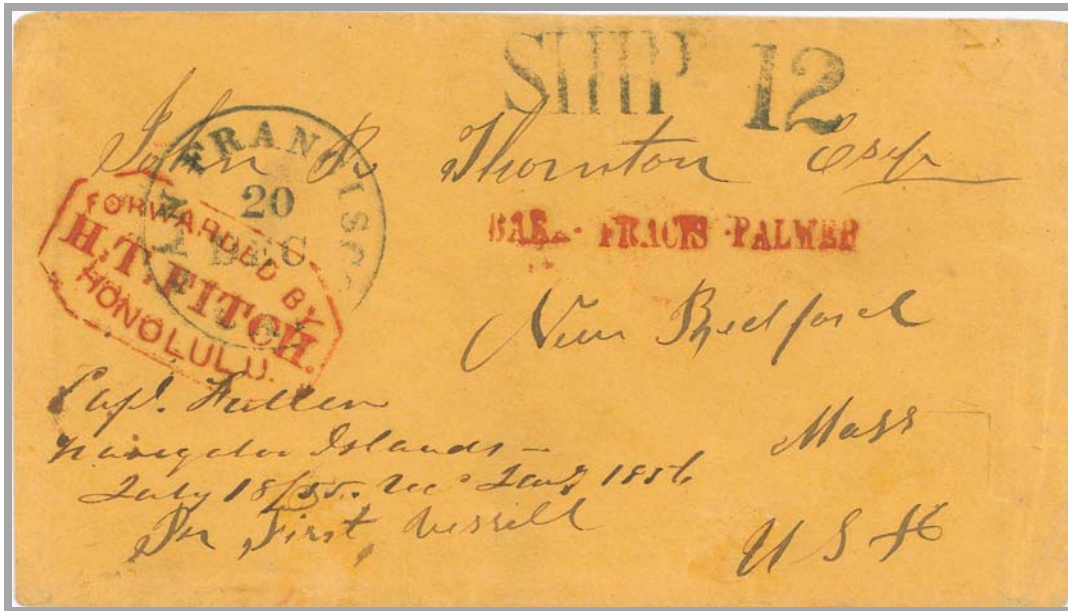 SHIP 12
John R Thornton Esqr
SAN FRANCISCO
20
DEC
CAL
FORWARDED BY
H.T. FITCH.
HONOLULU.
BARK FRACIS PALMER
New Bedford
Mass
U S A
Capt. Fuller
Navigator Islands -
July 18/55. Rec Jany 1856
Per First Vessill